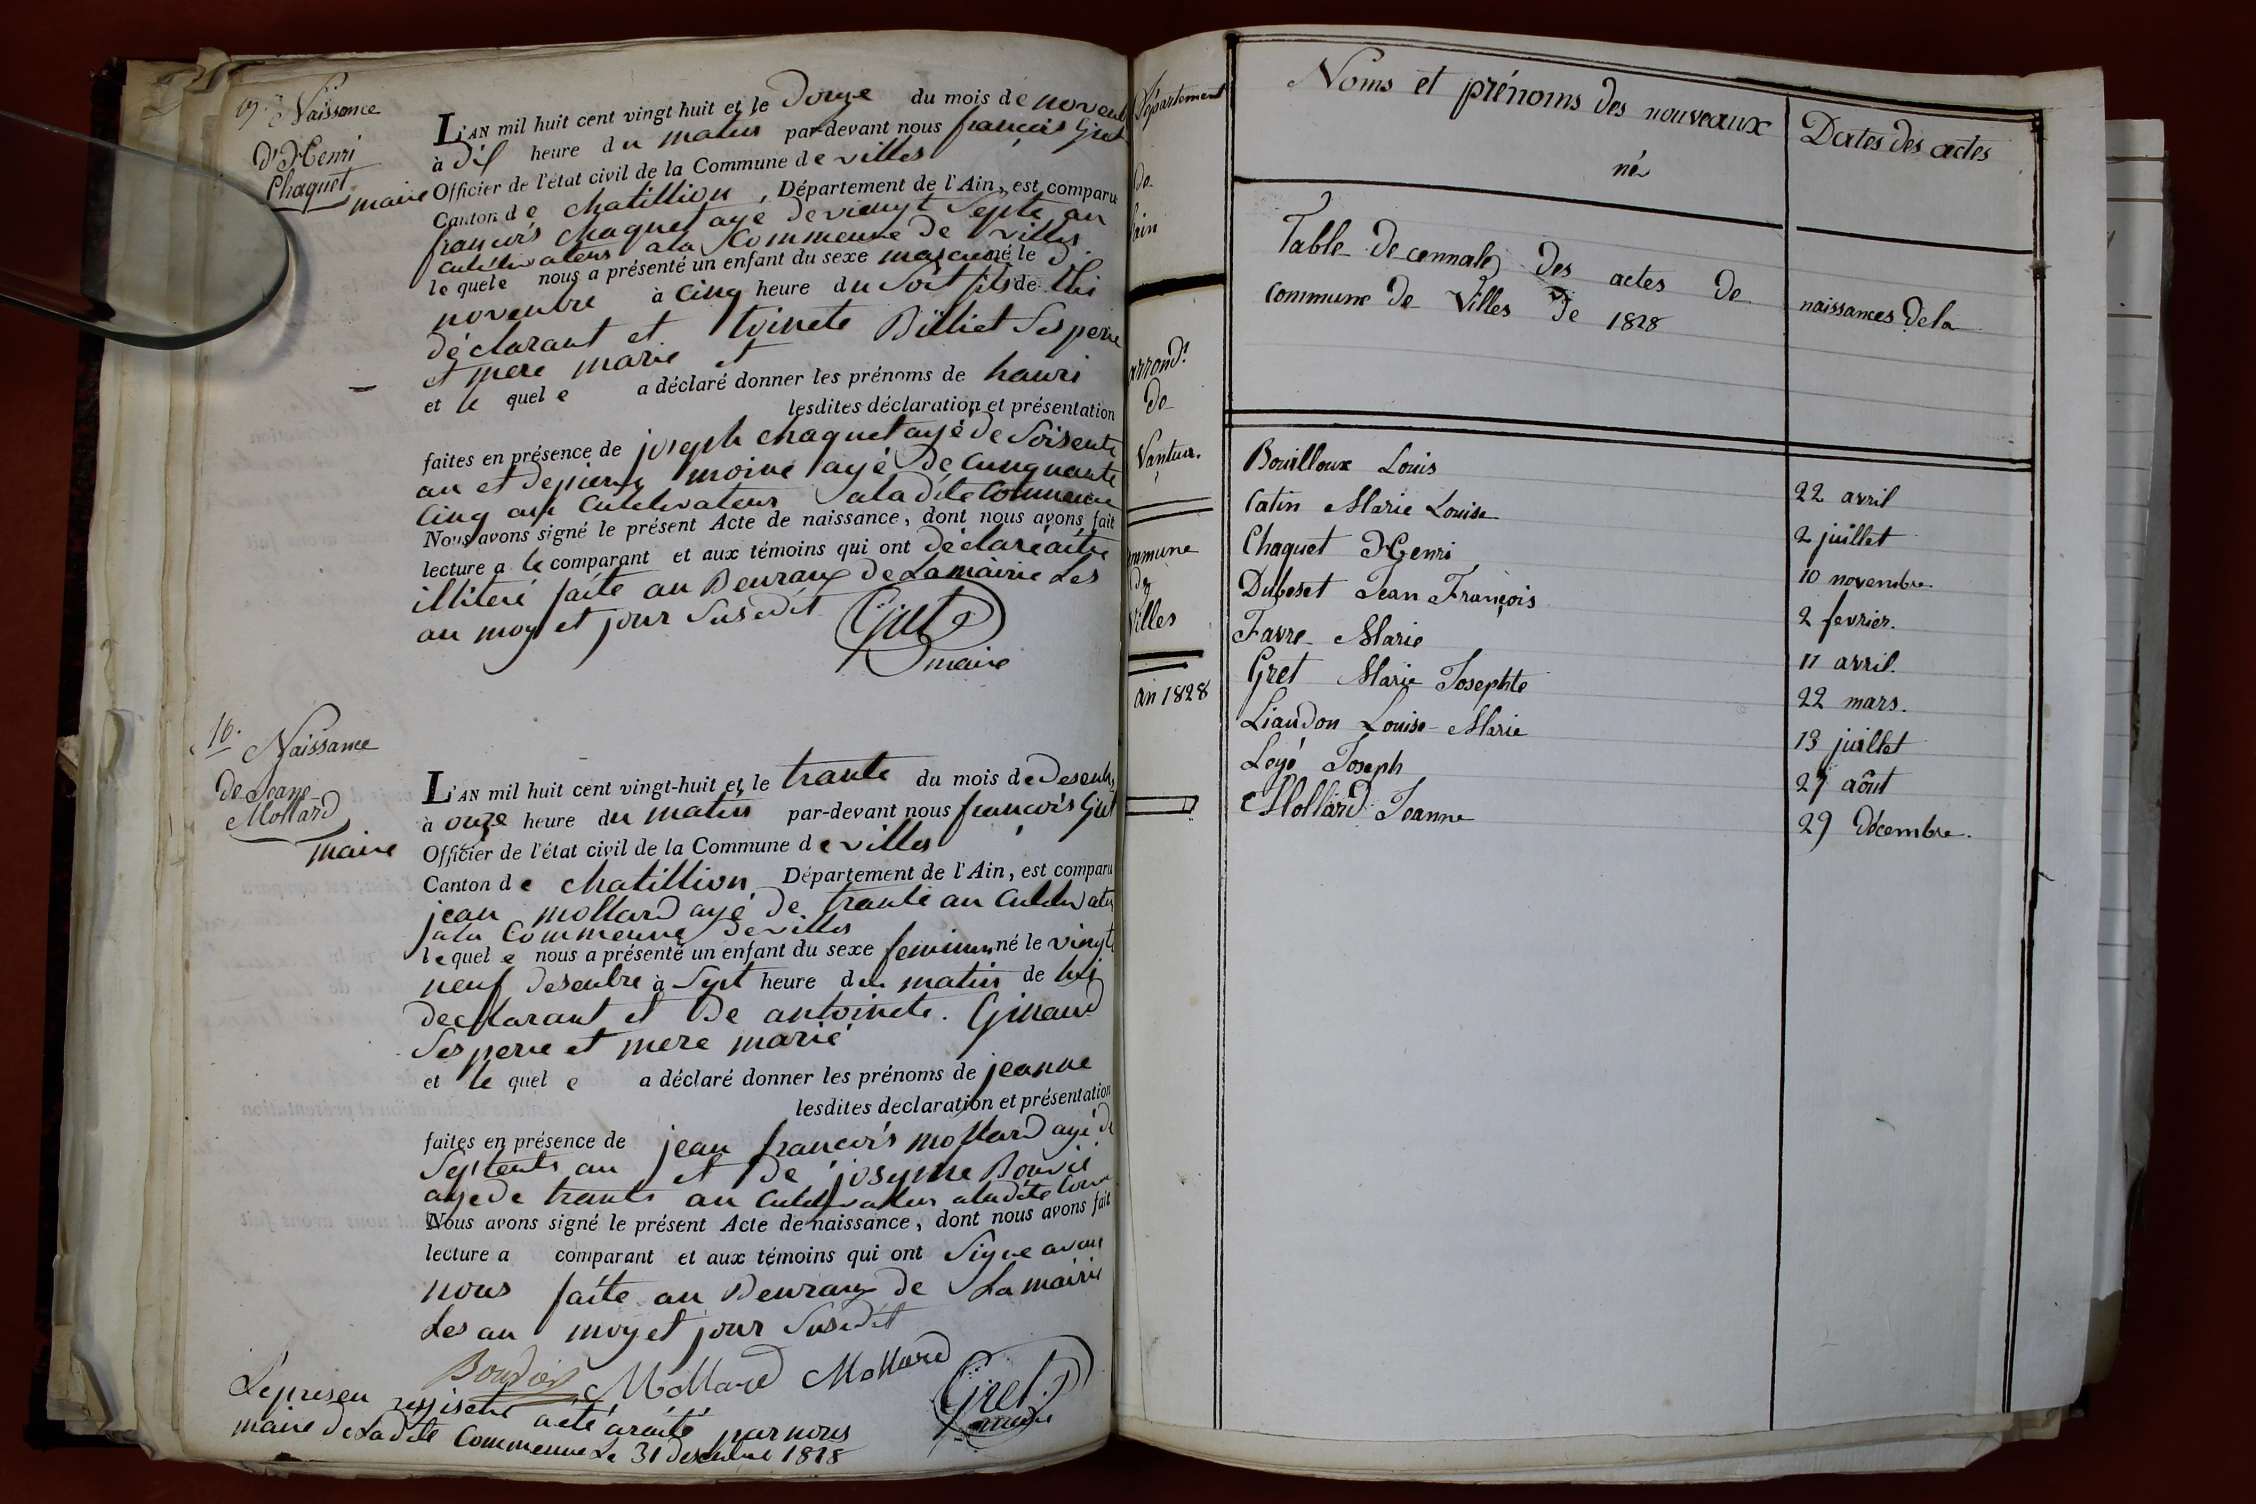 Naissance
d'Henri
Chaquet
maire
L'AN mil huit cent vingt huit et le douze du mois de novem
à dis heure du matin par-devant nous françois Gret
Officier de l'état civil de la Commune de villes
Canton de chatillion, Département de l'Ain, est comparu
françois chaquet ayé de viengt septe an
culltivateur a la Commeune de villes
le quele nous a présenté un enfant du sexe né le
novenbre à cinq heure du soit fils de lui
déclarant et toinete Billiet ses pere
et mere marie et
et le quel e a déclaré donner les prénoms de hanri
lesdites déclaration et présentation
faites en présence de joseph chaquet ayé de soisente
an et de pierre moine ayé de cinquante
cinq an culltivateur a la dite Commeune
Nous avons signé le présent Acte de naissance, dont nous avons fait
lecture a le comparant et aux témoins qui ont déclaré
illiteré faite au Beuraux de la mairie Les
an moy et jour susedit
Gret
maire
16.
Naissance
de Jeanne
Mollard
maire
L'AN mil huit cent vingt-huit et le trante du mois de desenb
à onze heure du matin par-devant nous françois Gret
Officier de l'état civil de la Commune de villes
Canton de chatillion Département de l'Ain, est comparu
jean mollard ayé de trante an culltivateu
a la Commeune de villes
le quel e nous a présenté un enfant du sexe feminin né le viengt
neuf desenbre à sept heure du matin de lui
declarant et de antoinete. Ginaud
ses pere et mere marié
et le quel e a déclaré donner les prénoms de jeanne
lesdites declaration et présentation
faites en présence de jean françois mollard ayé de
septente an et de Bouvié
aye de trante an culltivateur a la dite Com
Nous avons signé le présent Acte de naissance, dont nous avons fait
lecture a comparant et aux témoins qui ont signe avau
nous faite au Beuraux de La mairie
Les an moy et jour susedit
Mollard Mollard Gret
maire
Le presen registre a été arété par nous
maire de Ladite Commeune Le 31 desenbre 1828
Département
de
l'ain
arrond.t
de
Nantua.
Commune
de
Villes
an 1828
Noms et prénoms des nouveaux
né
Dates des actes
Table décennale des actes de naissances de la
commune de Villes de 1828
Bouilloux Louis 22 avril
Catin Marie Louise 2 juillet
Chaquet Henri 10 novembre.
Duboset Jean François 2 fevrier.
Favre Marie 11 avril.
Gret Marie Josephte 22 mars.
Liaudon Louise Marie 13 juillet
Loyé Joseph 27 août
Mollard Jeanne 29 décembre.